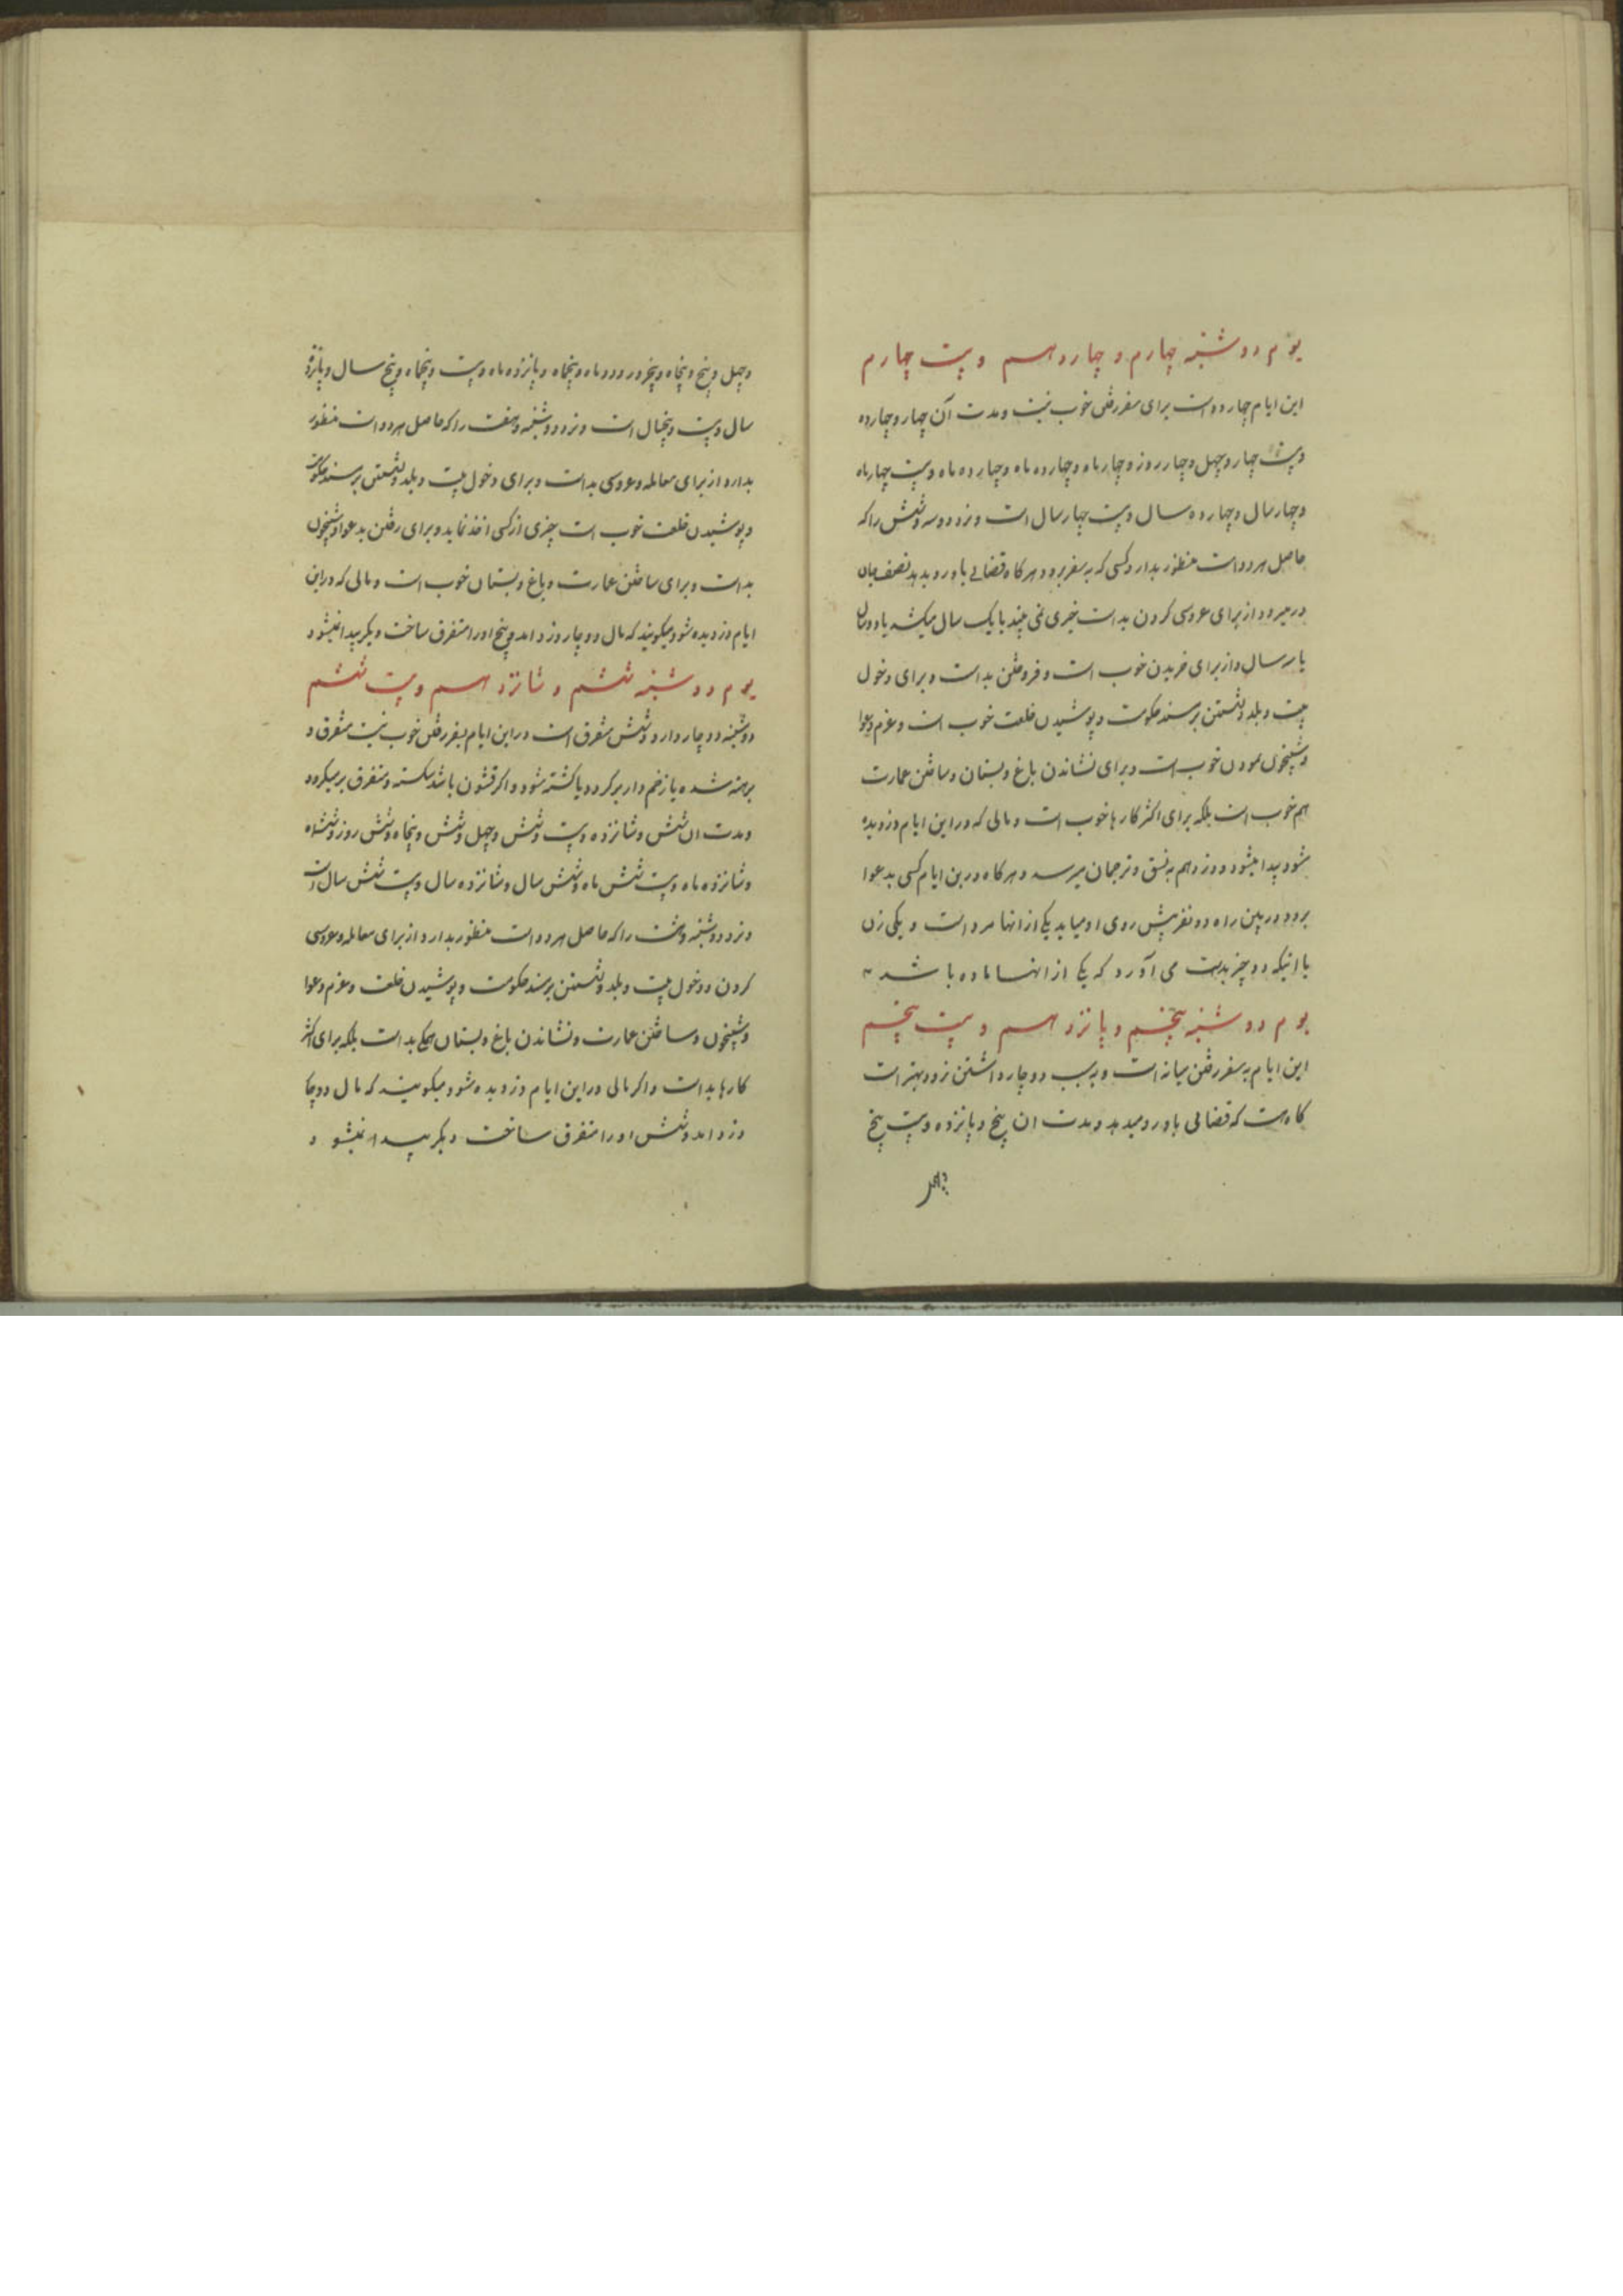 یوم دوشنبه چهارم و چهاردهم و بیست چهارم
این ایام چهار دو است برای سفر رفتن خوب نیست و مدت آن چهار و چهارده
و بیست چهار و چهل و چهار روز و چهار ماه و چهارده ماه و چهارده ماه و بیست چهار ماه
و چهار سال و چهارده سال و بیست چهار سال است و نزد دو سه و شش را که
حاصل هر دو است منظور بدارد کسی که به سفر برود هر کاه قضائی باو رو بدهد نصف میان
در میرود از برای عروسی کردن بد است خیری نمی بیند یا یک سال میکشد یا دو سال
یا سه سال و از برای خریدن خوب است و فروختن بد است و برای دخول
بیت و بلد و نشستن بر مسند حکومت و پوشیدن خلعت خوب است و عزم دعوا
و شبیخون نمودن خوب است و برای نشاندن باغ و بستان و ساختن عمارت
هم خوب است بلکه برای اکثر کارها خوب است و مالی که در این ایام دزدیده
شود پیدا میشود و دزد هم به نسق و ترجمان میرسد و هر کاه درین ایام کسی بدعوا
برود در بین راه دو نفر پیش روی او میاید یکی از آنها مرد است و یکی زن
یا اینکه دو چیز بدست می آورد که یکی از انها ماده باشد
یوم دوشنبه پنجم و پانزدهم و بیست پنجم
این ایام به سفر رفتن میانه است و به سبب دو چهار داشتن نزد بهتر است
کاه است که قضائی باو رو میدهد و مدت ان پنج و پانزده و بیست پنج
و چهل و پنج و پنجاه و پنج روز و دو ماه و پنجاه و پانزده ماه و بیست و پنجماه و پنج سال و پانزده
سال و بیست و پنجسال است و نزد دوشنبه و هفت را که حاصل هر دو است منظور
بدارد از برای معامله و عروسی بد است و برای دخول بیت و بلد و نشستن بر مسند حکومت
و پوشیدن خلعت خوب است چیزی از کسی اخذ نماید و برای رفتن بدعوا و شبیخون
بد است و برای ساختن عمارت و باغ و بستان خوب است و مالی که در این
ایام دزدیده شود میکویند که مال دو چهار دزد امد و پنج او را متفرق ساخت دیکر پیدا نمیشود
یوم دوشنبه ششم و شانزدهم و بیست ششم
دوشنبه دو چهار دارد و شش متفرق است در این ایام بسفر رفتن خوب نیست متفرق و
برهنه شده یا زخم دار برکردد یا کشته شود و اکر قشون باشد شکسته و متفرق بر میکردد
و مدت ان شش و شانزده و بیست و شش و چهل و شش و پنجاه و شش روز و ششماه
و شانزده ماه و بیست شش ماه و شش سال و شانزده سال و بیست شش سال است
و نزد دوشنبه و هشت را که حاصل هر دو است منظور بدارد از برای معامله و عروسی
کردن و دخول بیت و بلد و نشستن بر مسند حکومت و پوشیدن خلعت و عزم دعوا
و شبیخون و ساختن عمارت و نشاندن باغ و بستان همکی بد است بلکه برای اکثر
کارها بد است و اکر مالی در این ایام دزدیده شود میکویند که مال دو چهار
دزد امد و شش او را متفرق ساخت دیکر پیدا نمیشود